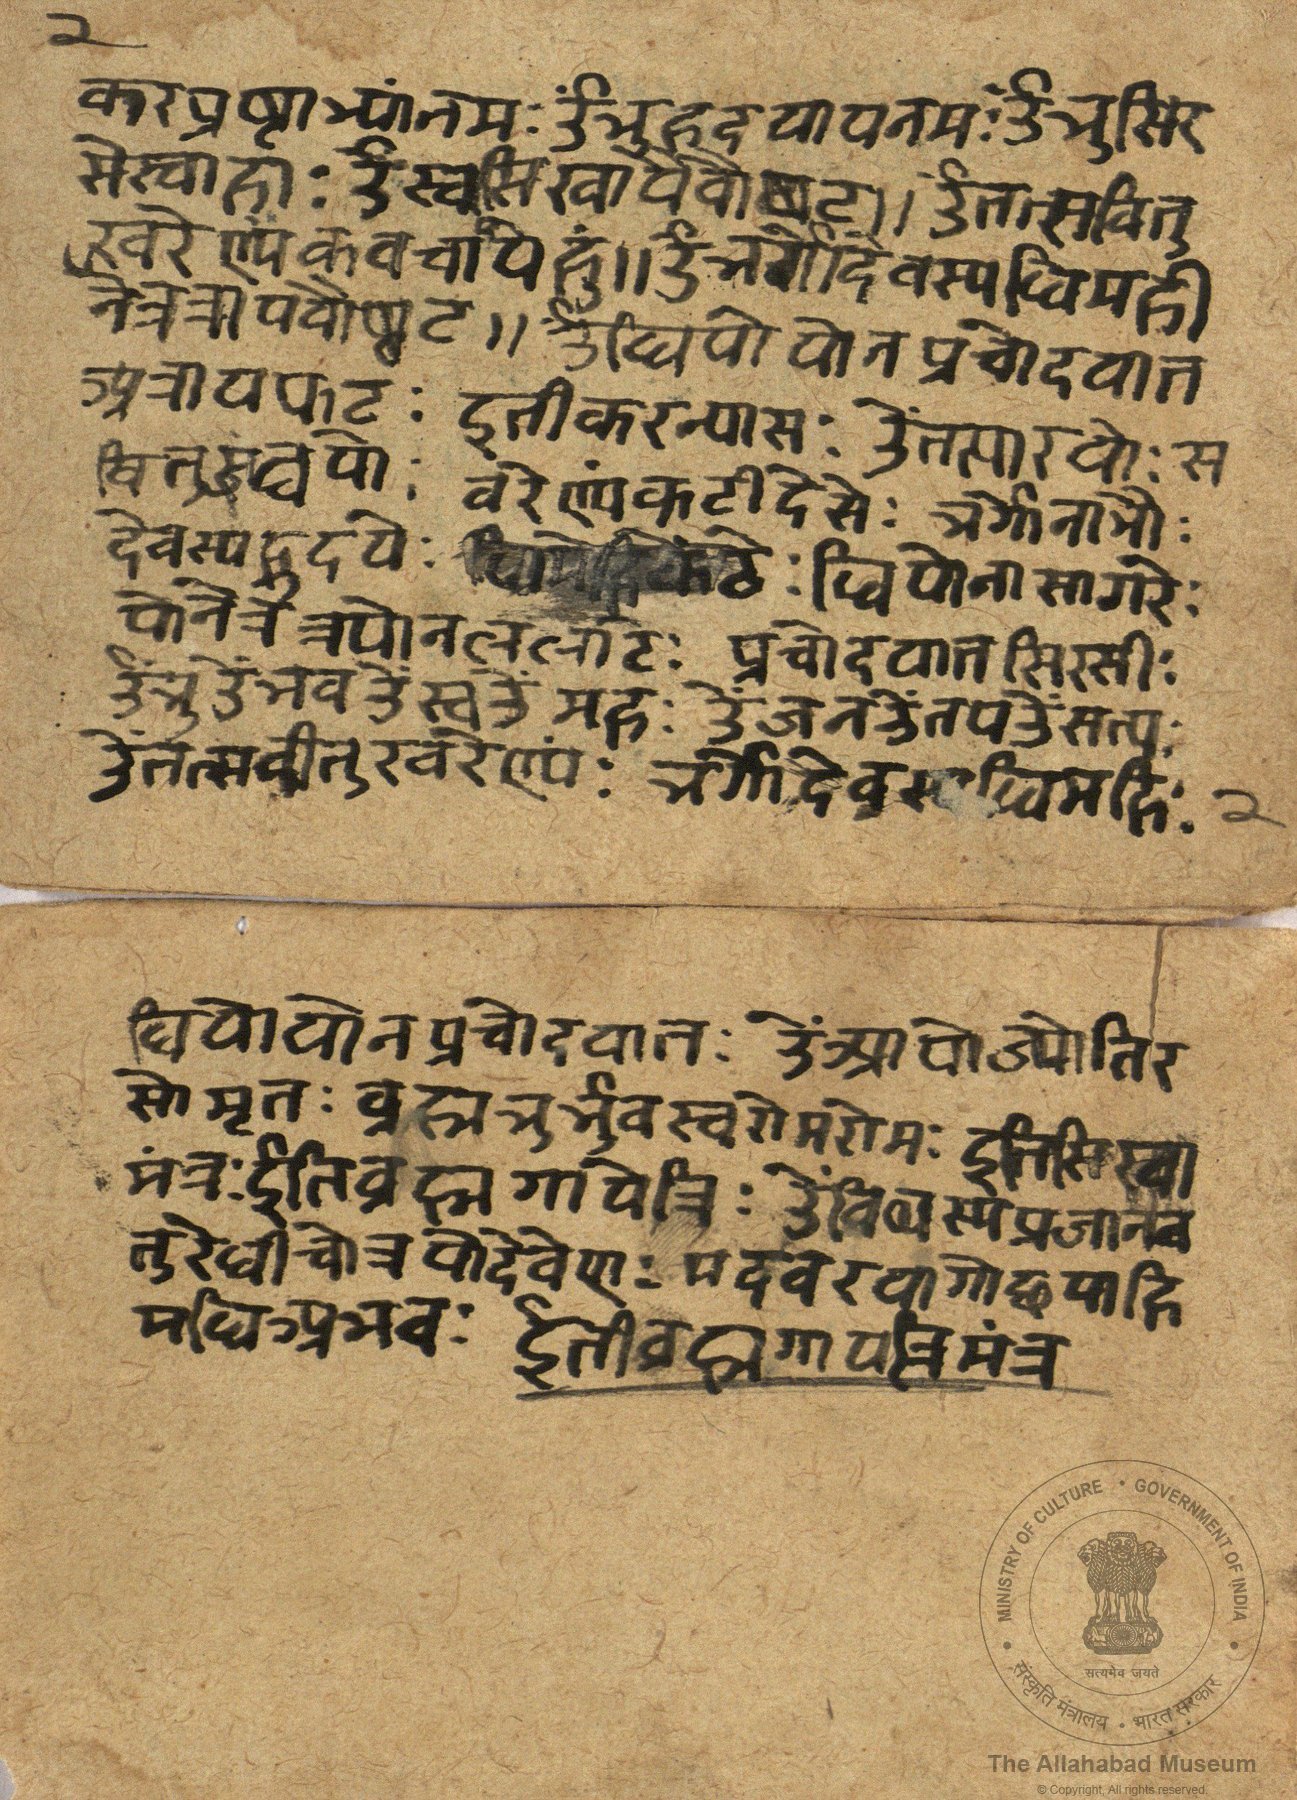 २
करप्रष्टाभ्यांनम: उंभुह्रदयायनमः उंभुसिर
सेस्वाहा: उंस्वसिखायैवौषट॥ उंतत्सवितु
रवरेण्यंकवचायेहुं॥ उंभर्गोदेवस्यधिमही
नेत्रत्रीयवौष्ट॥ उंधियोयोनप्रचोदयात
अत्रायफट: इतीकरन्यास: उेंतत्पारयो: स
वितुर्जंघयो: वरेण्यंकटीदेसे: भर्गोनाभौ:
देवस्यह्रुदये: कंठे: धियोनासागरे:
योनेत्रेत्रयोनललाट: प्रचोदयातसिरसी:
उेंभुउेंभवउेंस्वउेंमह: उेंजनउेंतपउेंसत्य:
उेंतत्सवीतुरवरेण्यं: भर्गोदेवस्यधिमहि: २
धियोयोनप्रचोदयात: उेंआपोज्योतिर
सोमृत: ब्रह्मभुर्भुवस्वरोमरोम: इतिसिखा
मंत्र: इतिब्रह्मगायेत्रि: उेंविष्यस्मप्रजानव
तुरेधीचोत्रयोदेवेण: मदवरयागोद्धयाहि
मधिअभव: ईतीब्रह्मगायत्रिमंत्र
MINISTRY OF CULTURE • GOVERNMENT OF INDIA
सत्यमेव जयते
संस्कृति मंत्रालय • भारत सरकार
The Allahabad Museum
© Copyright, All rights reserved.